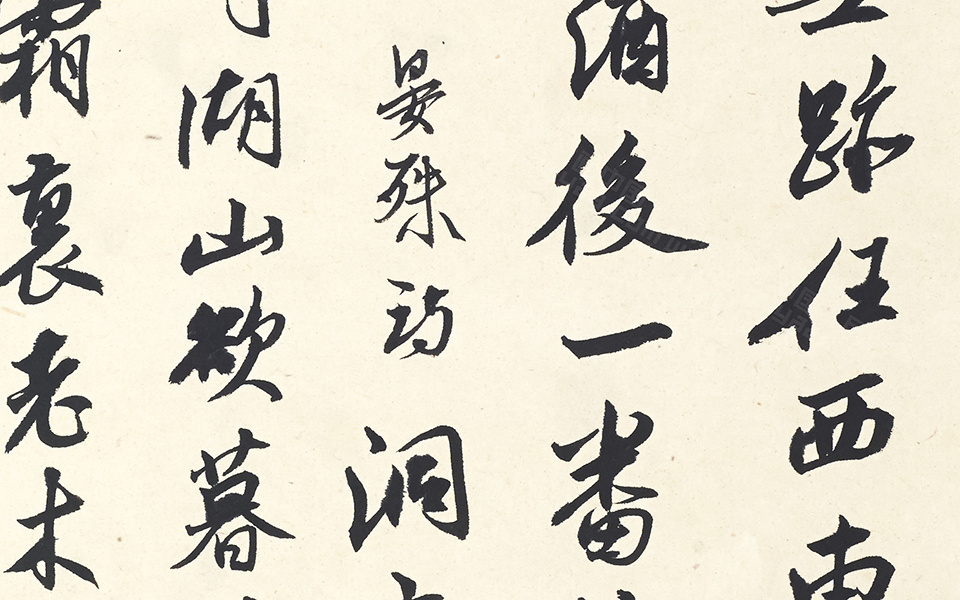 跡任西東
酒後一番
晏殊 洞
湖山欲暮
霜裏老木